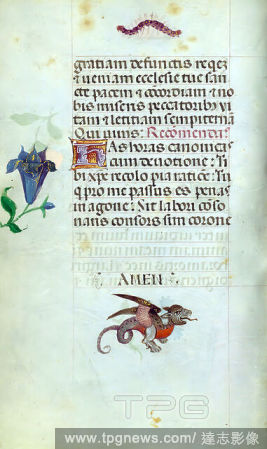 gratiam defunctis reqez
& ueniam ecclesie tue san
cte pacem & cōcordiam & no
bis miseris peccatoribȝ vi
tam & letitiam sempiternā
Qui uiuis: Recomenda?
Has horas canonicas
cum deuotione: Ti
bi xp̄e recolo pia ratiōe: Tu
q pro me passus es penas
in agone: Sit labori cōso
nans consors sim corone
AMEN
TPG
www.tpgnews.com / 達志影像